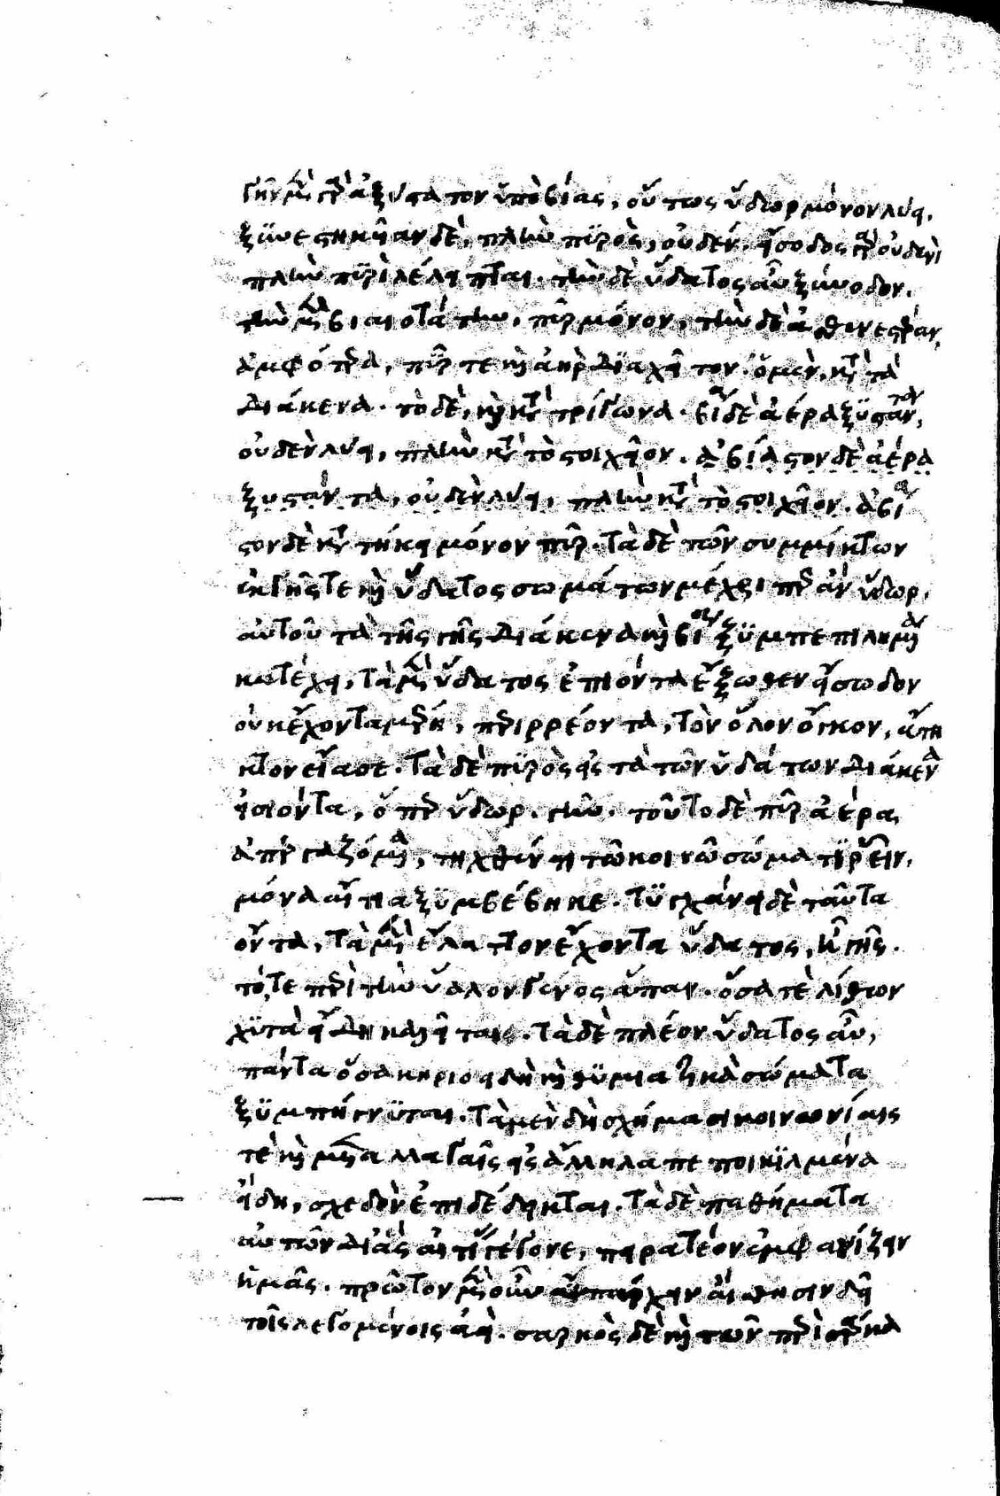 γῆν μὲν γὰρ ἀξύστατον ὑπὸ βίας, οὕτως ὕδωρ μόνον λύει.
ξυνεστηκυῖαν δὲ, πλὴν πυρὸς, οὐδέν. εἴσοδος γὰρ οὐδενὶ
πλὴν πυρὶ λέλειπται. τὴν δὲ ὕδατος αὖ ξύνοδον,
τὴν μὲν βιαιοτάτην, πῦρ μόνον, τὴν δὲ ἀσθενεστέραν,
ἀμφότερα, πῦρ τε καὶ ἀὴρ διαχεῖτον. ὁ μὲν, κατὰ τὰ
διάκενα. τὸ δὲ, καὶ κατὰ τρίγωνα. βίᾳ δὲ ἀέρα ξυσταντα,
οὐδὲν λύει, πλὴν κατὰ τὸ στοιχεῖον. ἀβίαστον δὲ ἀέρα
ξυστάντα, οὐδὲν λύει, πλὴν κατὰ τὸ στοιχεῖον. ἀβία
στον δὲ κατατήκει μόνον πῦρ. τὰ δὲ τῶν συμμίκτων
ἐκ γῆς τε καὶ ὕδατος σωμάτων μέχρι περ ἂν ὕδωρ,
αὐτοῦ τὰ τῆς γῆς διάκενα καὶ βίᾳ ξυμπεπιλημένα
κατέχῃ, τὰ μὲν ὕδατος ἐπιόντα ἔξωθεν εἴσοδον
οὐκ ἔχοντα μέρη, περιρρέοντα, τὸν ὅλον ὄγκον, ἄτη
κτον εἴασε. τὰ δὲ πυρὸς εἰς τὰ τῶν ὑδάτων διάκενα
εἰσιόντα, ὅπερ ὕδωρ. γῆν. τοῦτο δὲ πῦρ ἀέρα
ἀπεργαζόμενα, τηχθέντι τῷ κοινῷ σώματι ῥεῖν,
μόνα αἴτια ξυμβέβηκε. τυγχάνει δὲ ταῦτα
ὄντα, τὰ μὲν ἔλαττον ἔχοντα ὕδατος, ἢ γῆς.
τό, τε περὶ τὴν ὕαλον γένος ἅπαν. ὅσα τε λίθων
χυτὰ εἴδη καλεῖται. τὰ δὲ πλέον ὕδατος αὖ,
πάντα ὅσα κηροειδῆ καὶ θυμιατικὰ σώματα
ξυμπήγνυται. τὰ μὲν δὴ σχήμασι κοινωνίαις
τε καὶ μεταλλαγαῖς εἰς ἄλληλα πεποικιλμένα
εἴδη, σχεδὸν ἐπιδέδεικται. τὰ δὲ παθήματα
αὐτῶν δι’ ἃς αἰτίας γέγονε, πειρατέον ἐμφανίζειν
ἡμᾶς. πρῶτον μὲν οὖν ὑπάρχειν αἴσθησιν δεῖ
τοῖς λεγομένοις ἀεί. σαρκὸς δὲ καὶ τῶν περὶ σάρκα